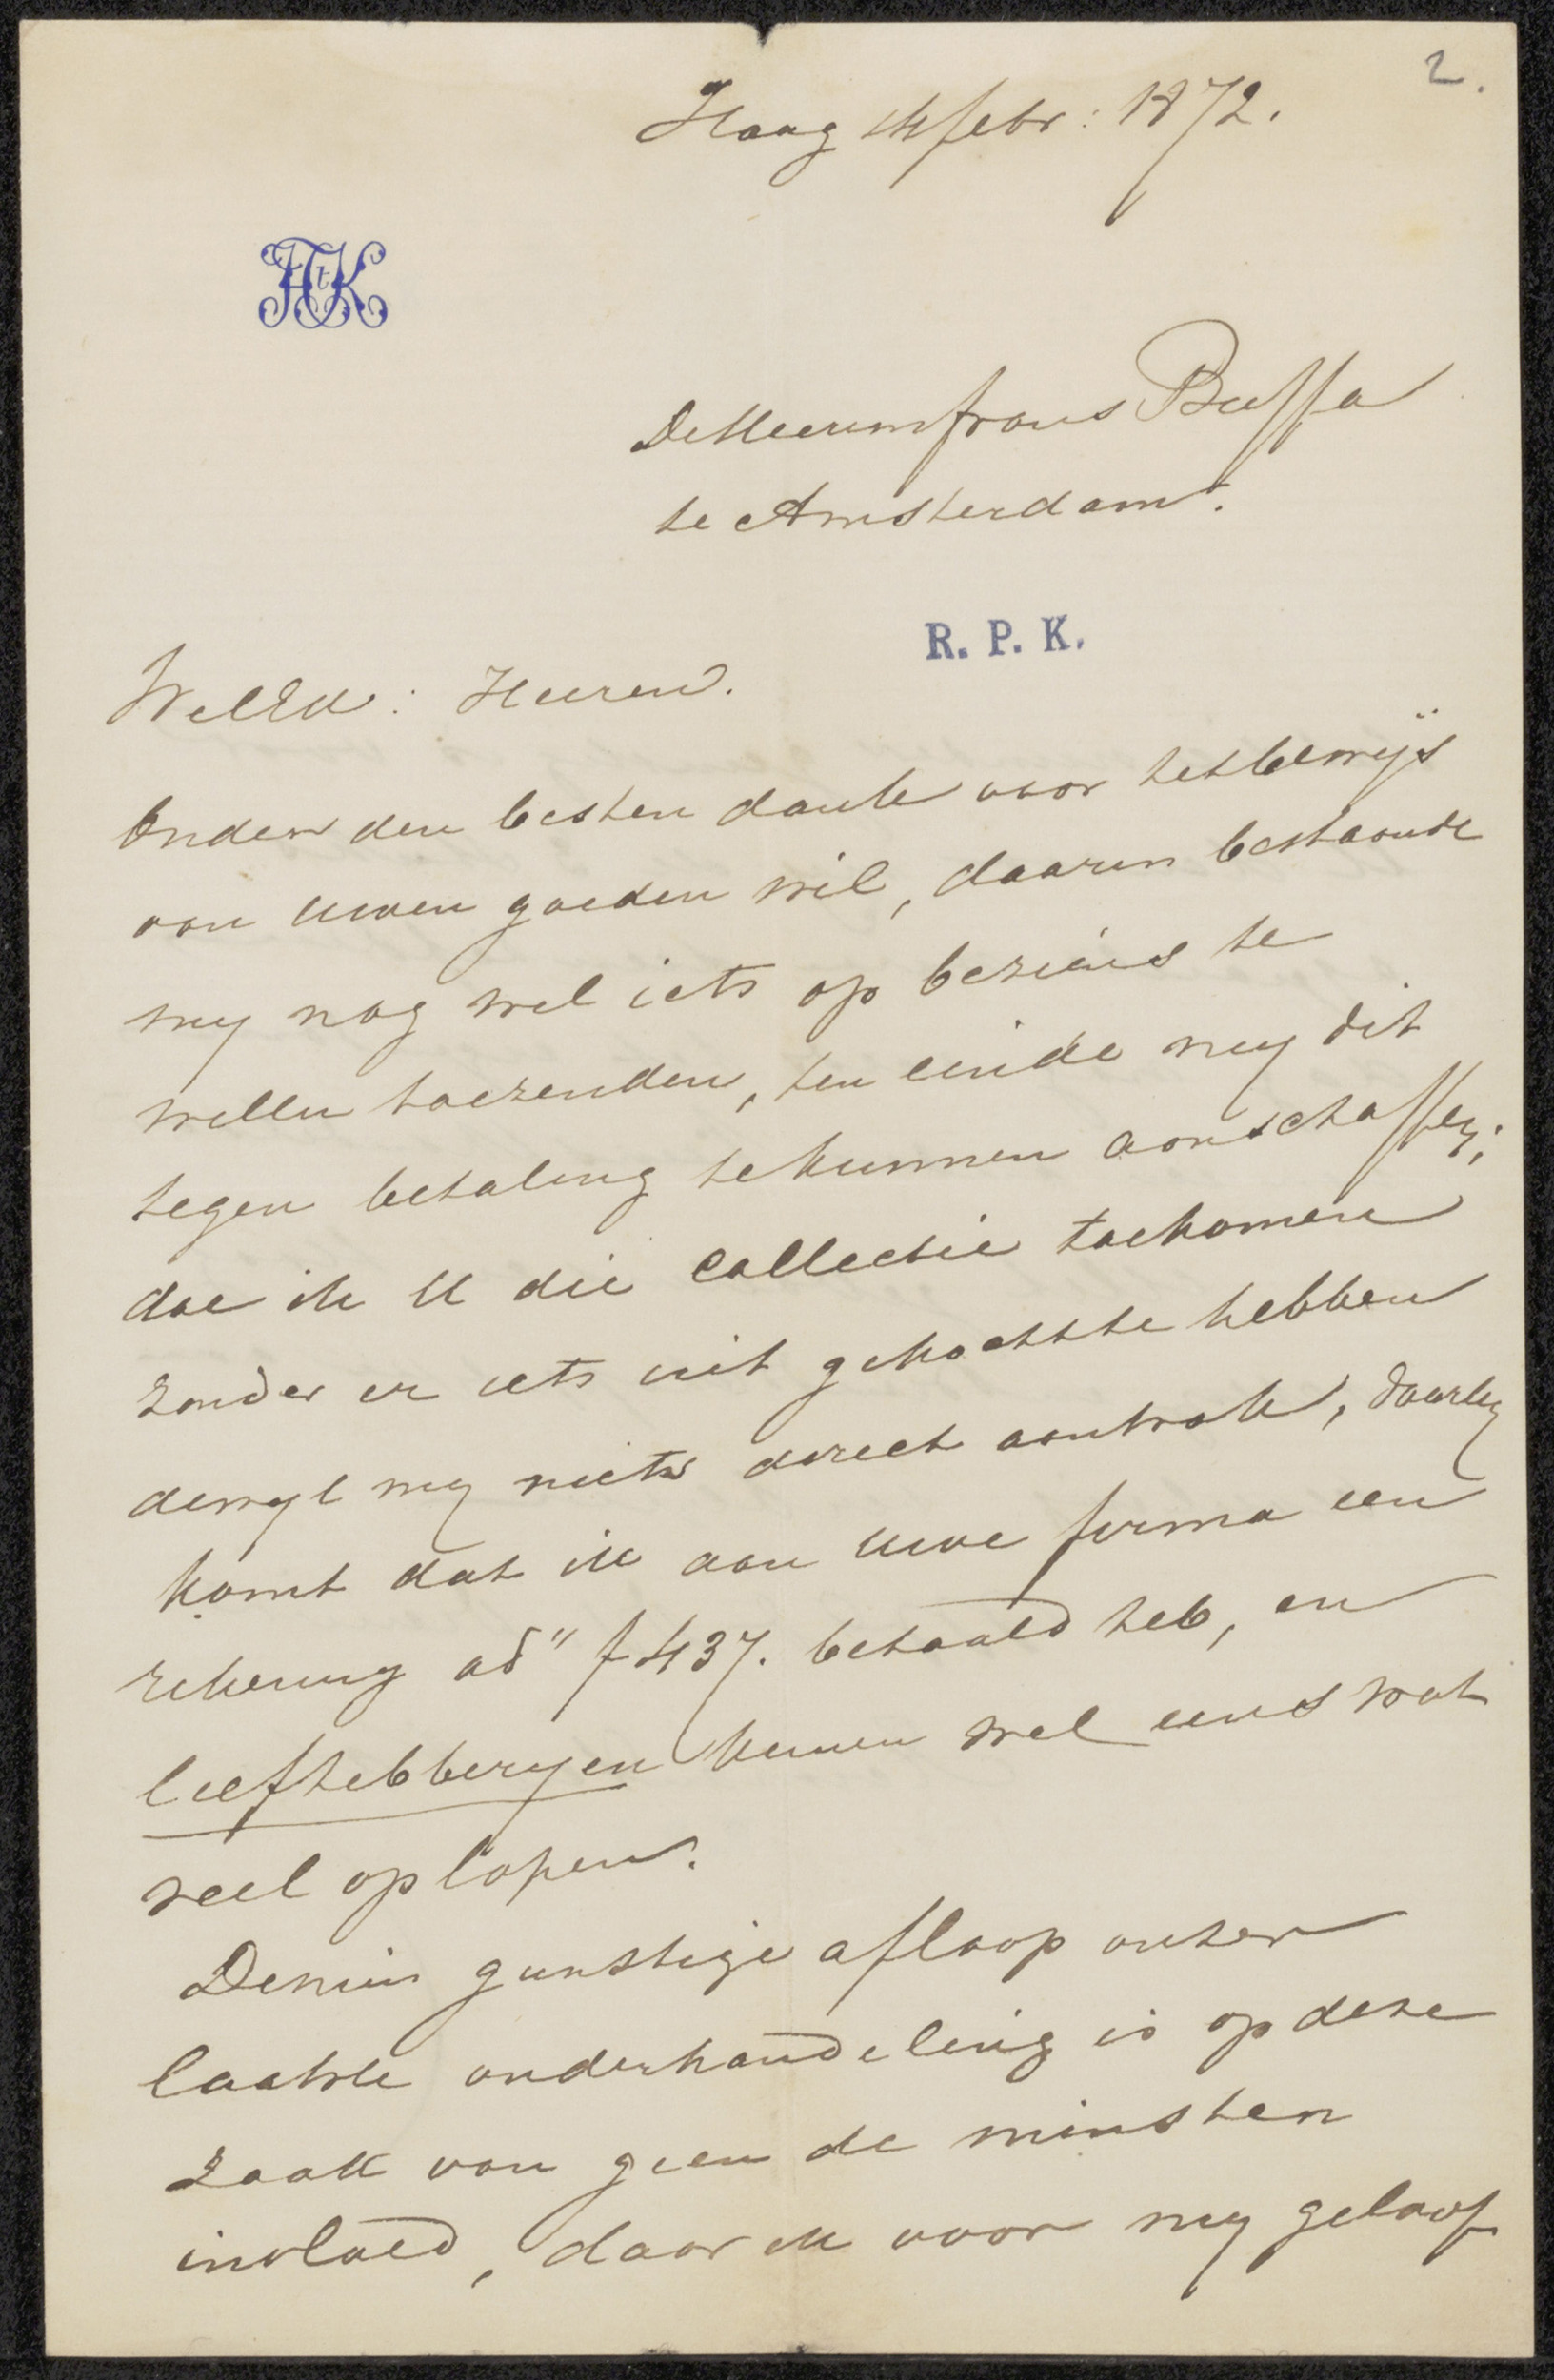 2.
Haag 14 febr: 1872.
FtK
De Heeren frans Buffa
te Amsterdam.
R. P. K.
WelEd: Heeren.
Onder den besten dank voor het bewÿs
van uwen goeden wil, daarin bestaande
my nog wel iets op beziens te
willen toezenden, ten einde my dit
tegen betaling te kunnen aanschaffen;
doe ik U die collectie toekomen
zonder er iets uit gekocht te hebben
dewyl my niets direct aantrok, daarby
komt dat ik aan uwe firma een
rekening ad" f 437. betaald heb, en
liefhebberyen kunnen wel eens wat
veel oplopen.
De min gunstige afloop onzer
laatste onderhandeling is op deze
zaak van geen de minsten
invloed, daar ik voor my geloof